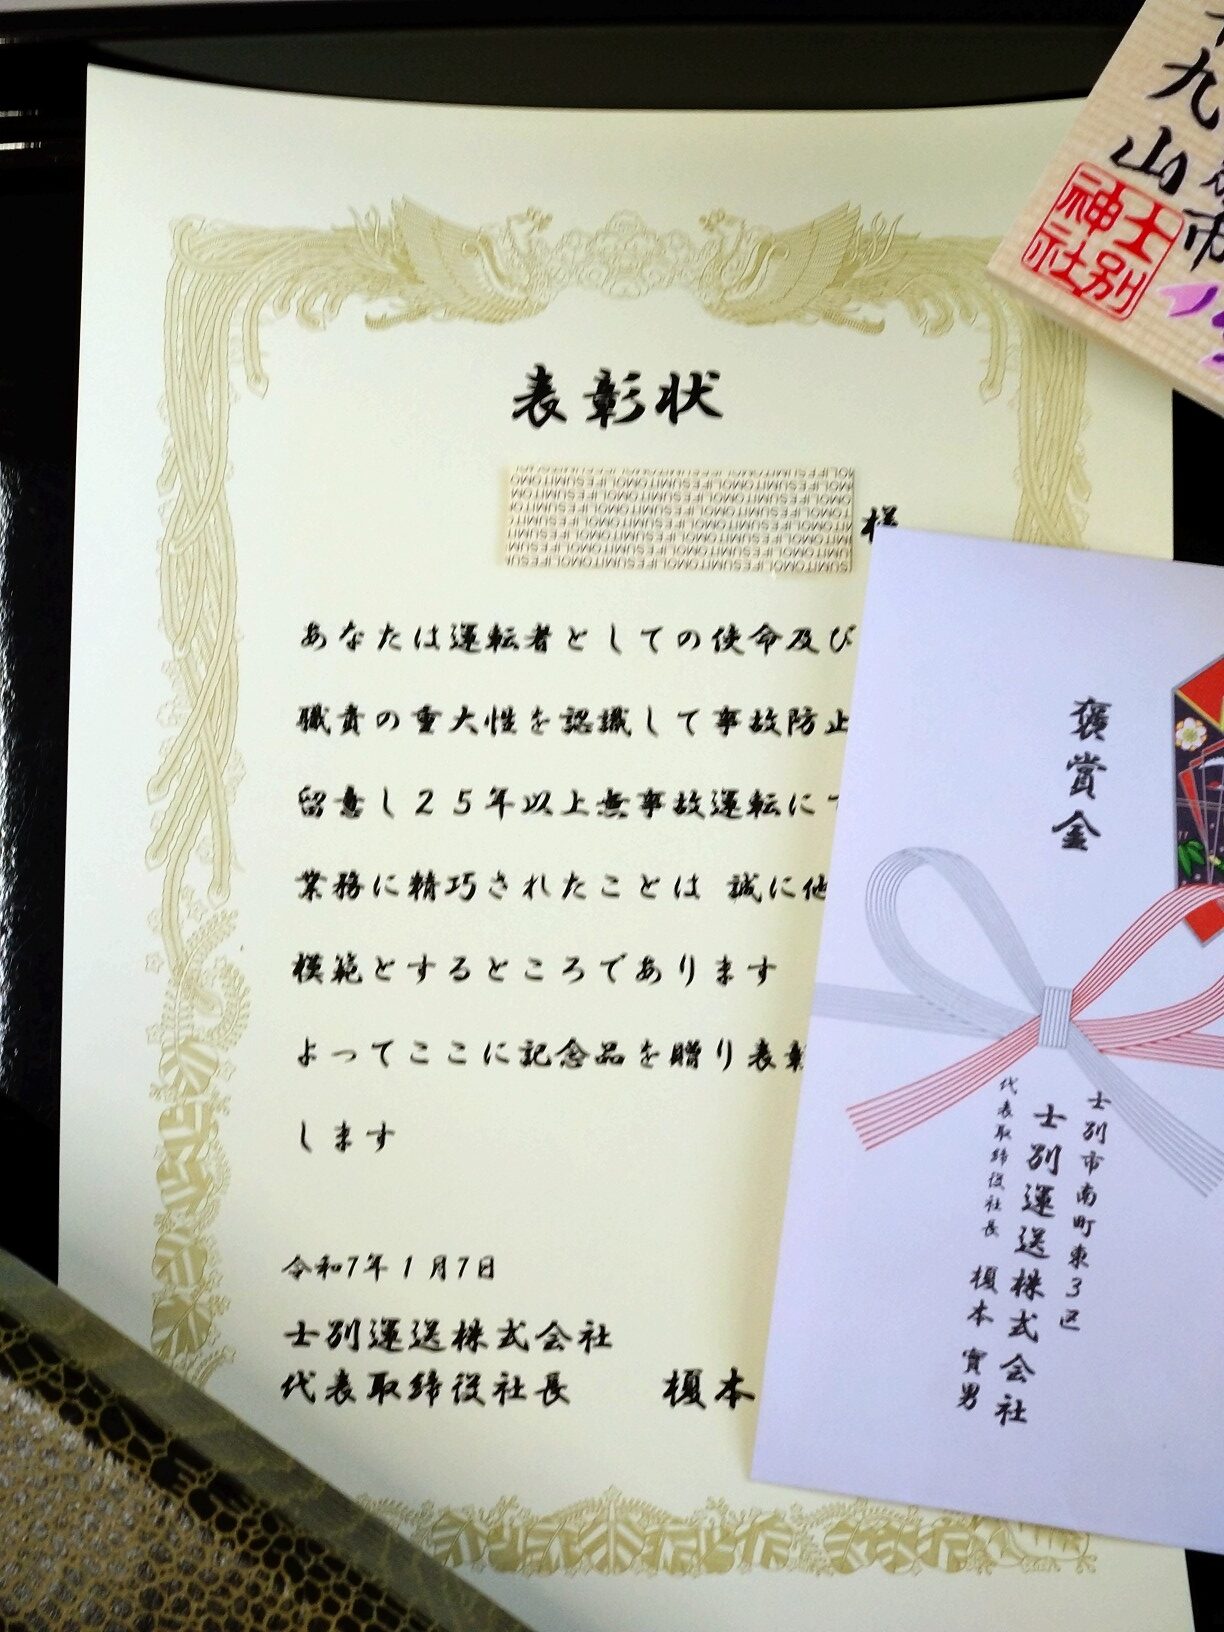 表彰状
様
あなたは運転者としての使命及び
職責の重大性を認識して事故防止
留意し25年以上無事故運転に
業務に精巧されたことは 誠に他
模範とするところであります
よってここに記念品を贈り表彰
します
令和7年1月7日
士別運送株式会社
代表取締役社長 榎本
褒賞金
士別市南町東3区
士別運送株式会社
代表取締役社長 榎本 實男
九
山
市
士別
神社
SUMITOMOLIFESUMITOMOLIFE